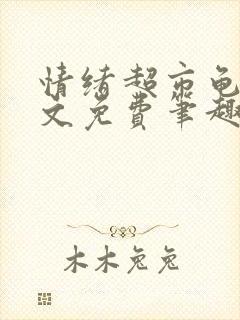 情绪超市龟
文免费笔趣
木木兔兔